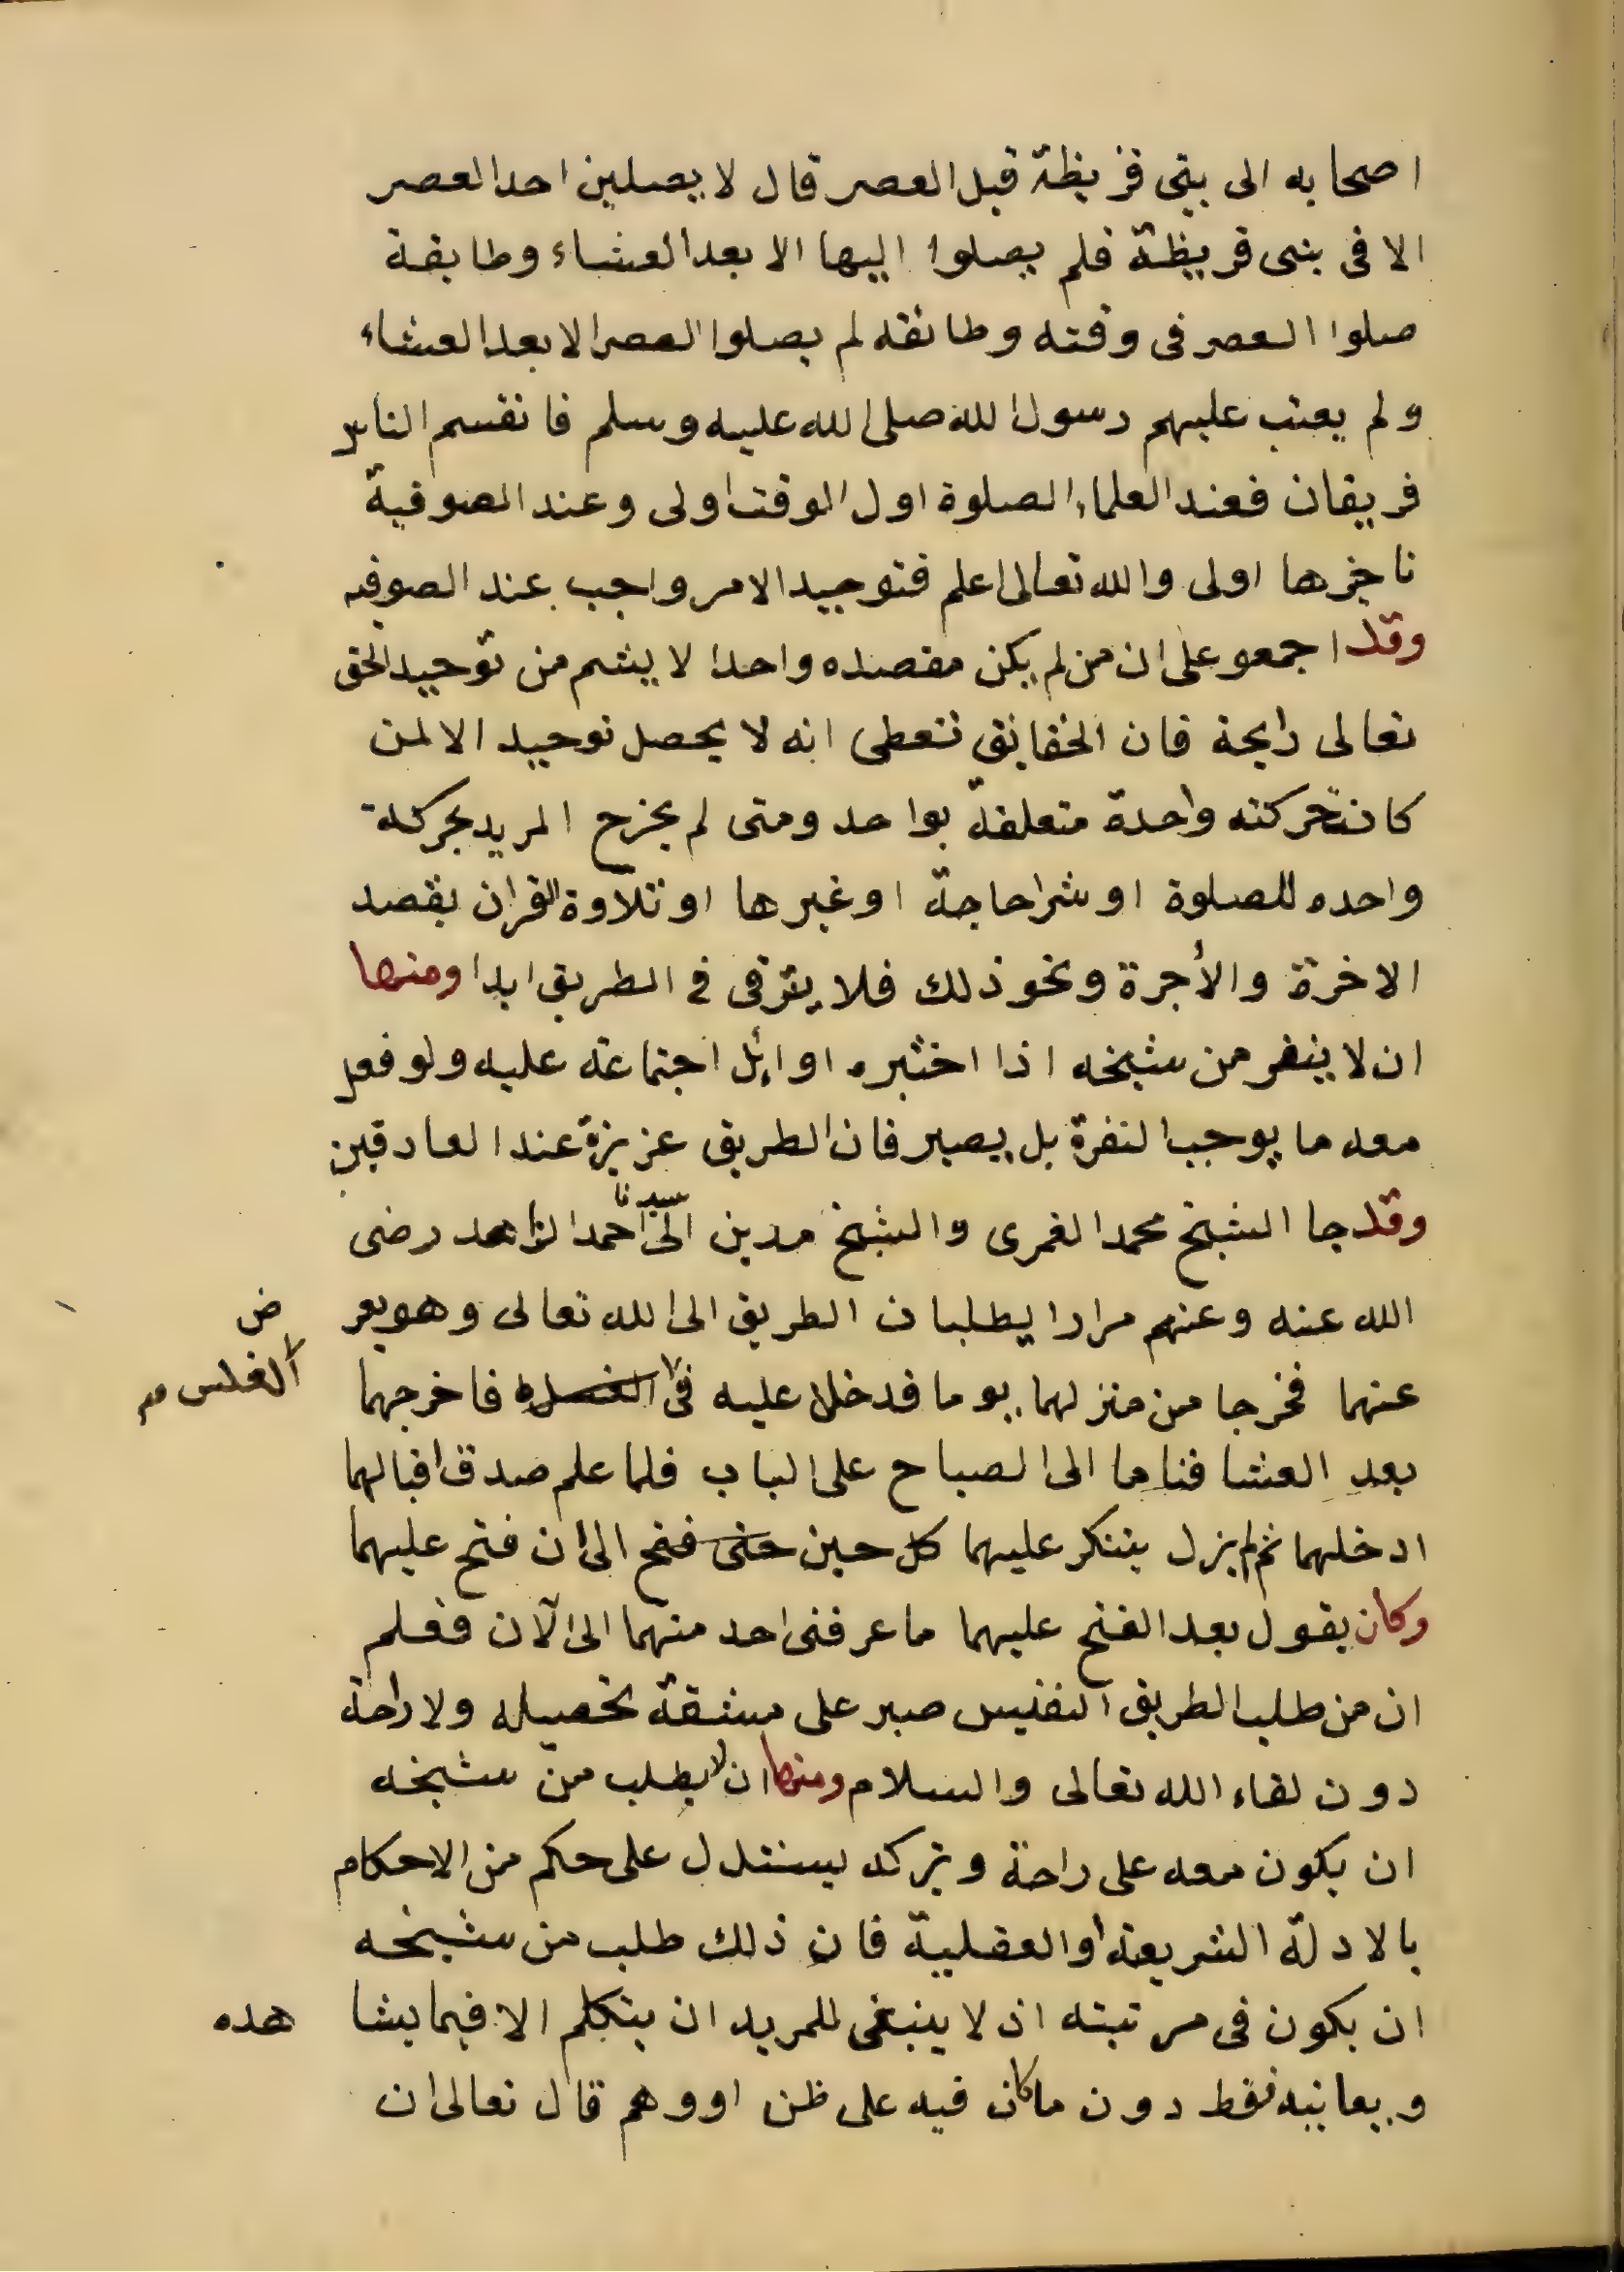 اصحابه الى بيتى قريظة قبل العصر قال لا يصلين احد العصر
الا فى بنى قريظة فلم يصلوا اليها الا بعد العشاء وطايفة
صلوا العصر فى وقته وطائفه لم يصلوا العصر الا بعد العشاء
ولم يعتب عليهم رسول الله صلى الله عليه وسلم فانقسم الناس
فريقان فعند العلماء الصلوة اول الوقت اولى وعند الصوفية
تاخيرها اولى والله تعالى اعلم فتوحيد الامر واجب عند الصوفيه
وقد اجمعو على ان من لم يكن مقصده واحدا لا يشم من توحيد الحق
تعالى رايحة فان الحقايق تعطى انه لا يحصل توحيد الا لمن
كانت حركته واحدة متعلقة بواحد ومتى لم يخرج المريد بحركة
واحده للصلوة او شرا حاجة او غيرها او تلاوة القران بقصد
الاخرة والأجرة ونحو ذلك فلا يترقى فى الطريق ابدا ومنها
ان لا ينفر من شيخه اذا اختبره اوائل اجتماعه عليه ولو فعل
معه ما يوجب النفرة بل يصبر فان الطريق عزيزة عند العارفين
وقد جا الشيخ محمد الغمرى والشيخ مدين الى سيدنا احمد الزاهد رضى
الله عنه وعنهم مرارا يطلبان الطريق الى الله تعالى وهو يعر
ض
عنهما فخرجا من منزلهما يوما فدخلا عليه فى فاخرجهما
الغلس
بعد العشا فناما الى الصباح على الباب فلما علم صدق اقبالهما
ادخلهما ثم لم يزل يتنكر عليهما كل حين حتى فتح الى ان فتح عليهما
وكان يقول بعد الفتح عليهما ما عرفنى احد منهما الى الآن فعلم
ان من طلب الطريق النفيس صبر على مشقة تحصيله ولا راحة
دون لقاء الله تعالى والسلام ومنها ان لا يطلب من شيخه
ان يكون معه على راحة ويتركه يستدل على حكم من الاحكام
بالادلة الشريعة أو العقلية فان ذلك طلب من شيخه
ان يكون فى مرتبته اذ لا ينبغى للمريد ان يتكلم الا فيما يشا هده
ويعاينه فقط دون ما كان فيه على ظن او وهم قال تعالى ان